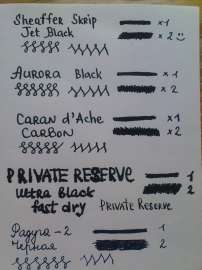 Sheaffer Skrip x1
Jet Black x2
Aurora Black x1
x2
Caran d'Ache x1
Carbon x2
PRIVATE RESERVE 1
Ultra Black 2
fast dry Private Reserve
Радуга-2 1
Чёрная 2